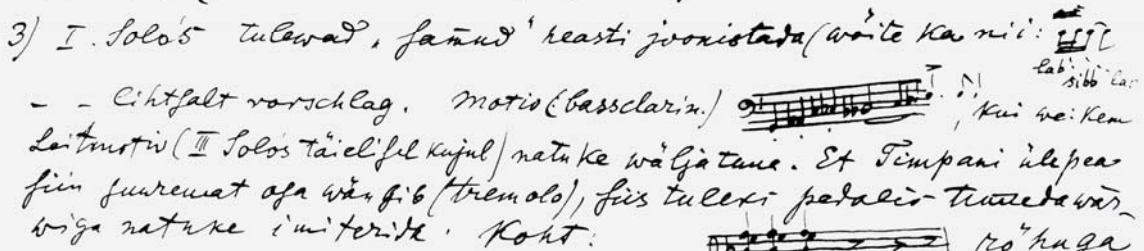 3) I. Solo's tulewad „samud" heasti joonistada (wõite ka nii:
lab sibb la:
- - lihtsalt vorschlag. Motiv (bassclarin.) , kui weikem
Leitmotiv (III Solos täielisel kujul) natuke wäljatuua. Et Timpani ülepea
siin suuremat osa mängib (tremolo), siis tuleks pedalis tumedawär-
wiga natuke imiterida. Koht: rõhuga